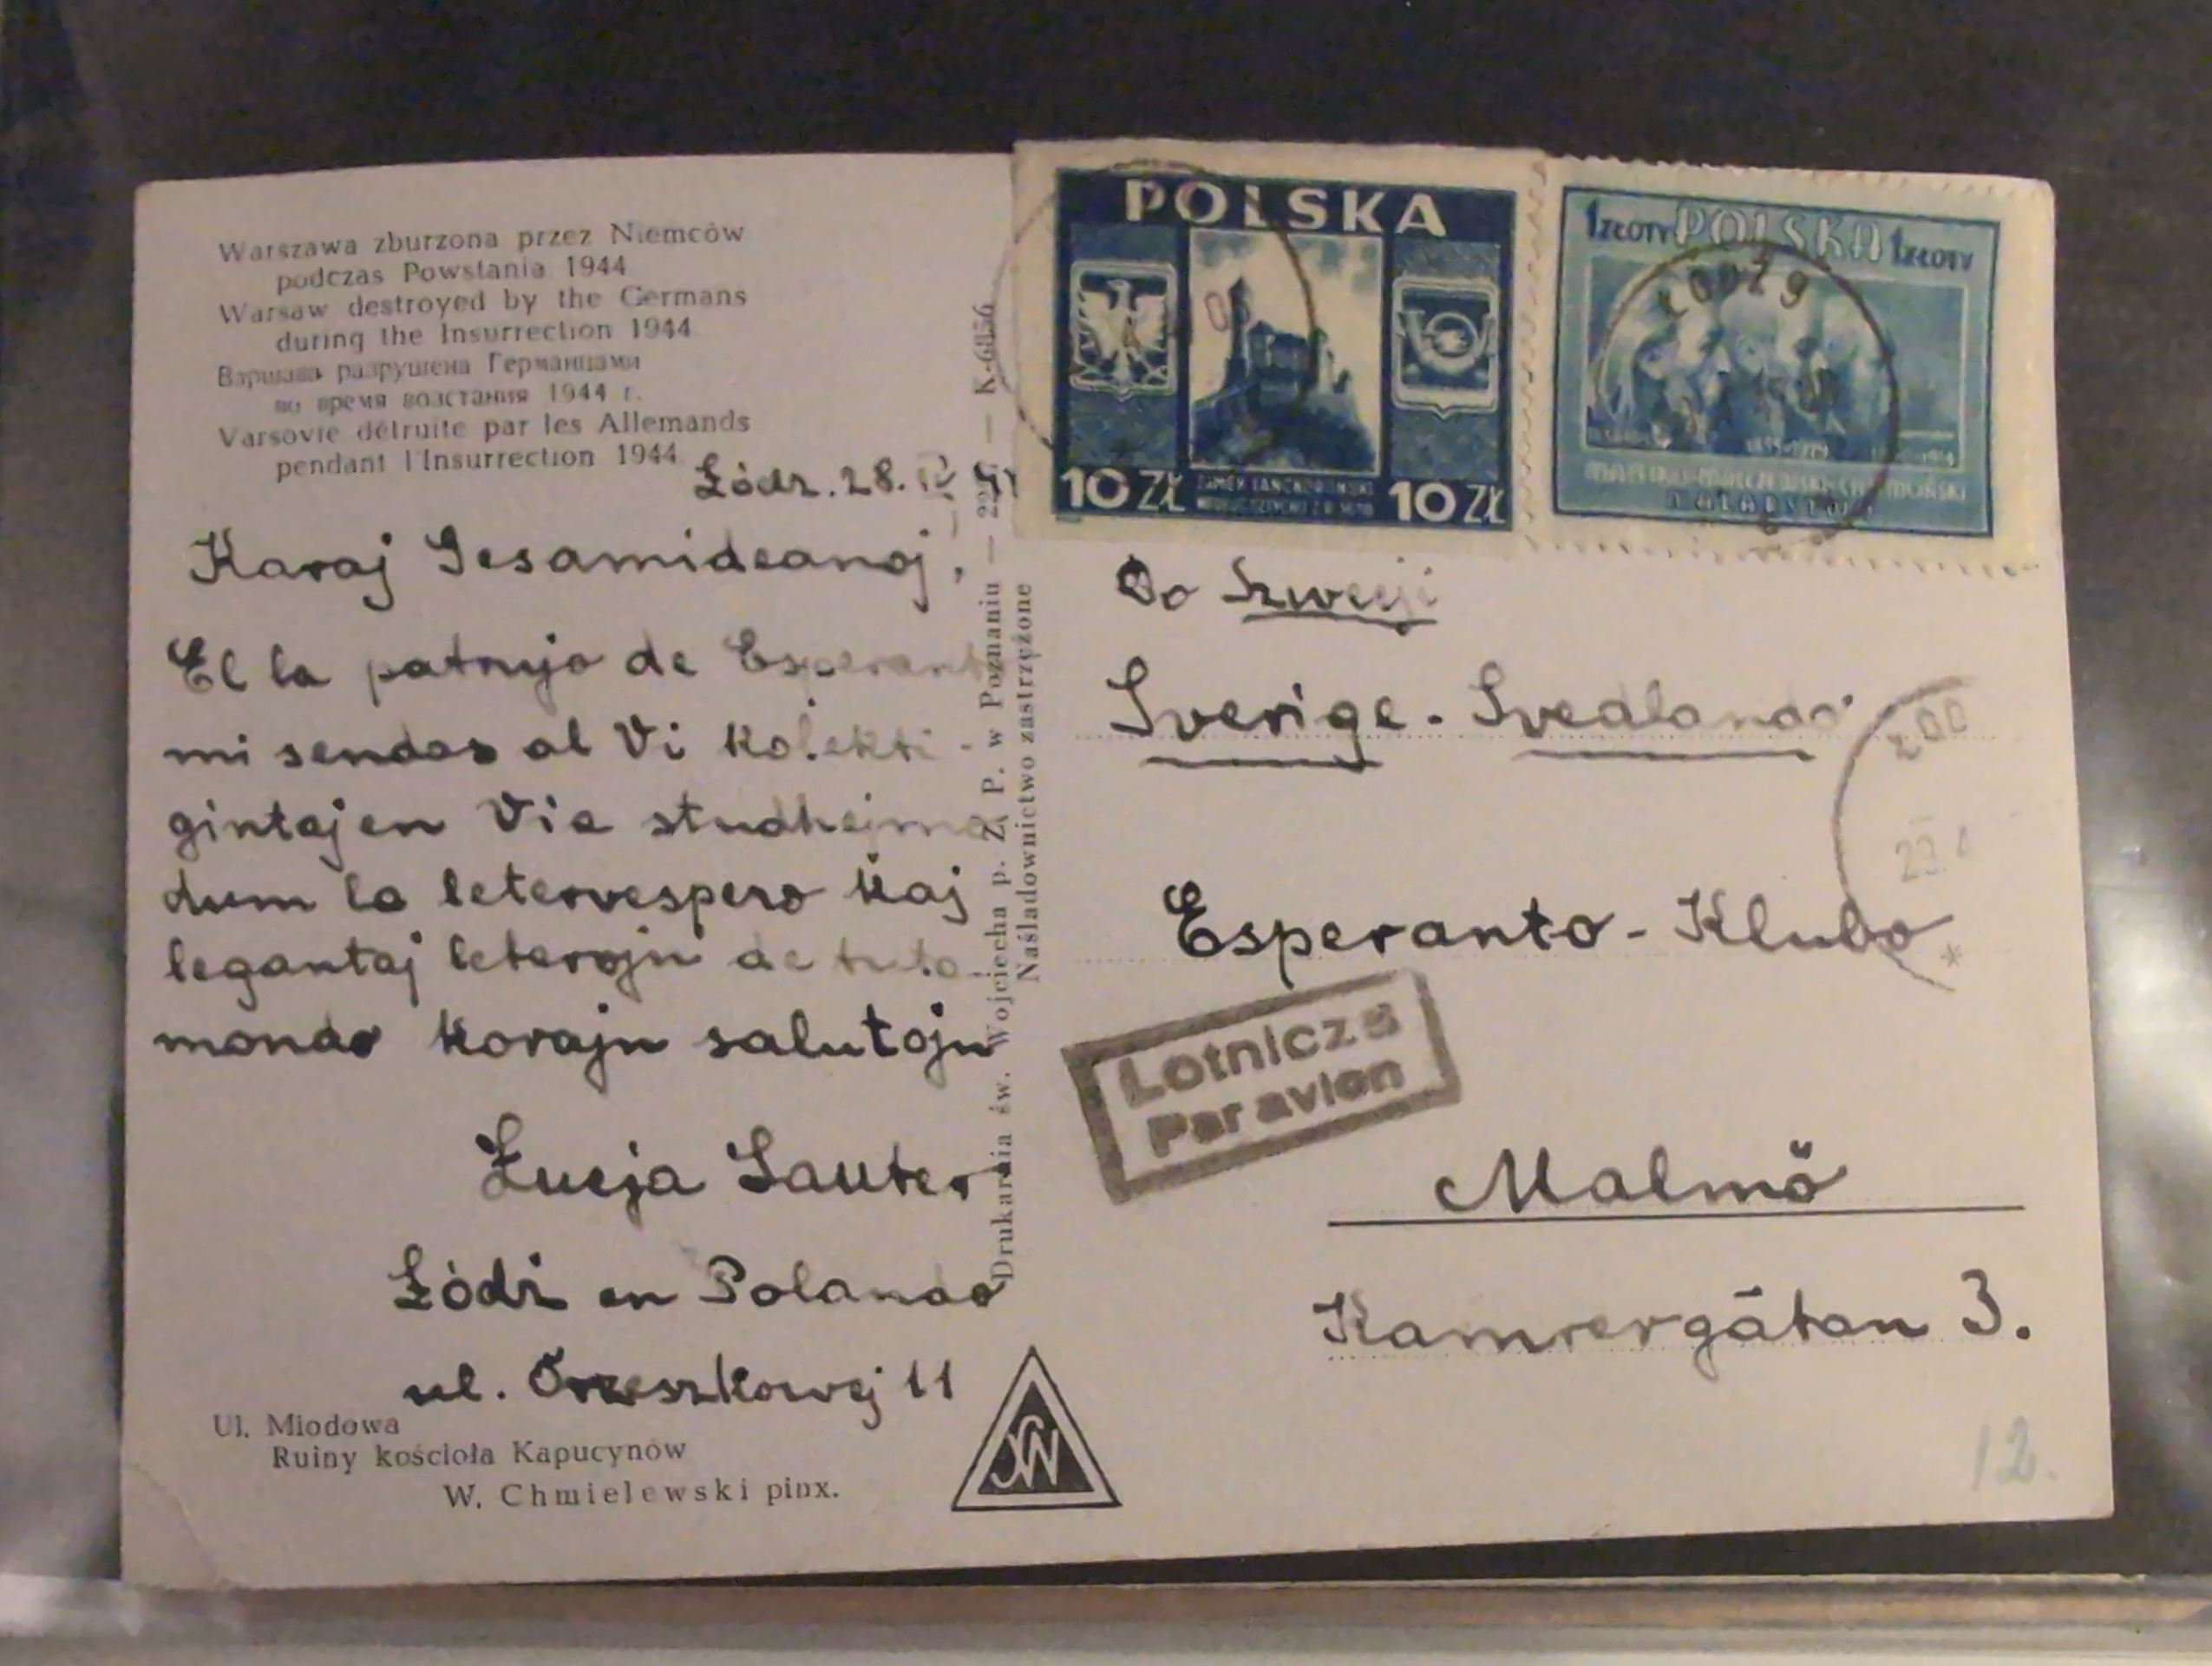 Warszawa zburzona przez Niemców
podczas Powstania 1944
Warsaw destroyed by the Germans
during the Insurrection 1944
Варшава разрушена Германцами
во время возстания 1944 г.
Varsovie détruite par les Allemands
pendant l'Insurrection 1944
Łódz. 28. IV
Karaj Gesamideanoj,
El la patrujo de Esperant
mi sendas al Vi kolekti-
gintajen Via studhejmo
dum la letervespero kaj
legantaj leterojn de tuta
mondo korajn salutojn
Łucja Sauter
Łódź en Polando
ul. Orzeszkowej 11
Ul. Miodowa
Ruiny kościoła Kapucynów
W. Chmielewski pinx.
Drukarnia św. Wojciecha p. Z. P. w Poznaniu — — K-6356
Naśladownictwo zastrzeżone
POLSKA
10 ZŁ
10 ZŁ
1 ZŁOTY POLSKA 1 ZŁOTY
ŁÓDŹ 9
Do Szwecji
Sverige - Svedlando
ŁÓD
29.
Esperanto - Klubo
Lotnicza
Par avion
Malmö
Kamrergätan 3.
12.